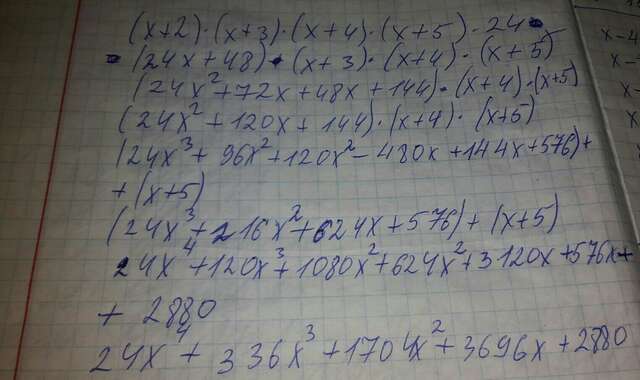 (x+2)·(x+3)·(x+4)·(x+5)·24
(24x+48)·(x+3)·(x+4)·(x+5)
(24x²+72x+48x+144)·(x+4)·(x+5)
(24x²+120x+144)·(x+4)·(x+5)
(24x³+96x²+120x²-480x+144x+576)+
+(x+5)
(24x³+216x²+624x+576)+(x+5)
24x⁴+120x³+1080x²+624x²+3120x+576x+
+2880
24x⁴+336x³+1704x²+3696x+2880
x-4
x-
x-